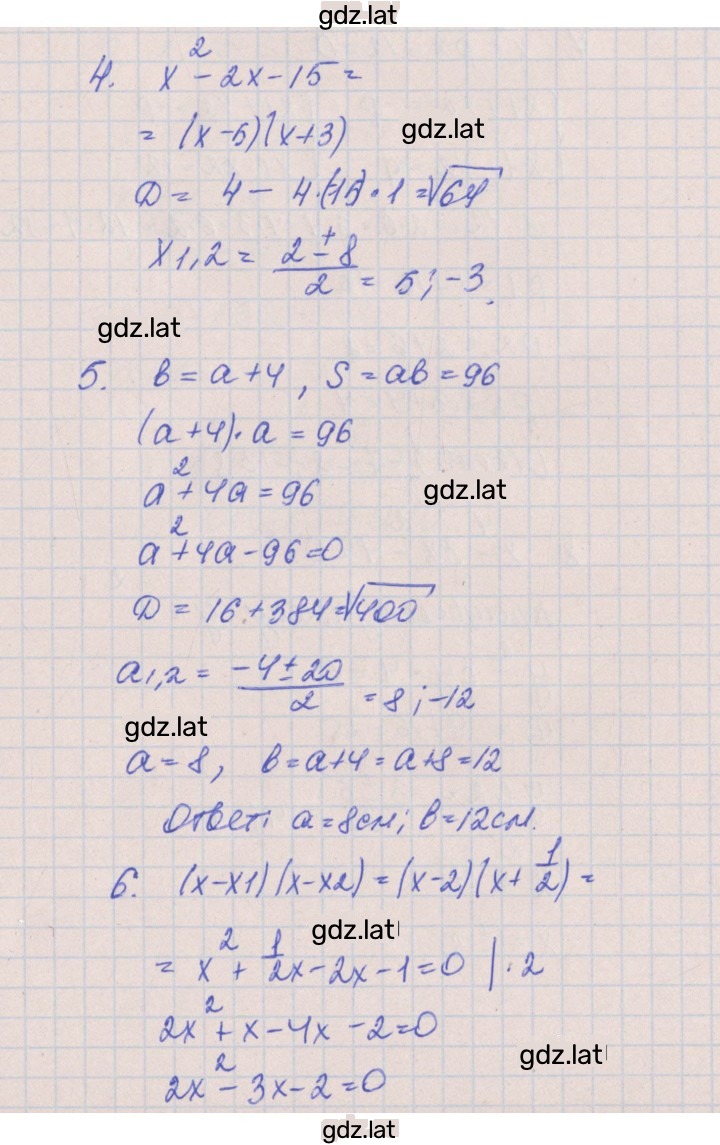 gdz.lat
4. x² - 2x - 15 =
= (x - 5)(x + 3)
gdz.lat
D = 4 - 4·(-15)·1 = √64
x1,2 = (2 ± 8)/2 = 5; -3.
gdz.lat
5. b = a + 4, S = ab = 96
(a + 4)·a = 96
a² + 4a = 96
gdz.lat
a² + 4a - 96 = 0
D = 16 + 384 = √400
a1,2 = (-4 ± 20)/2 = 8; -12
gdz.lat
a = 8, b = a + 4 = a + 8 = 12
Ответ: a = 8см; b = 12см.
6. (x - x1)(x - x2) = (x - 2)(x + 1/2) =
gdz.lat
= x² + 1/2x - 2x - 1 = 0 |·2
2x² + x - 4x - 2 = 0
gdz.lat
2x² - 3x - 2 = 0
gdz.lat